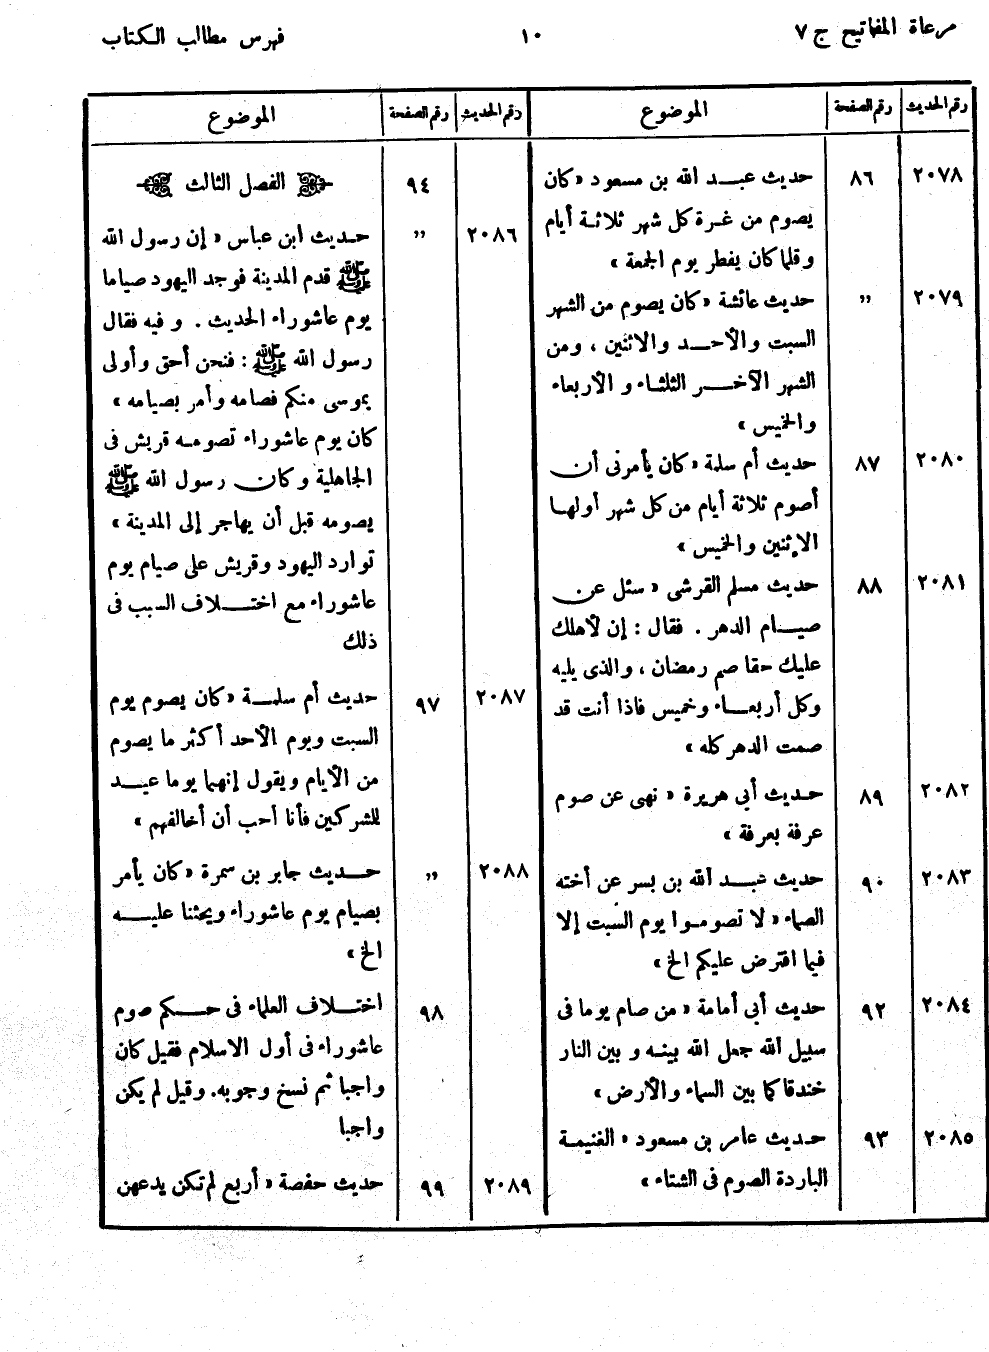 مرعاة المفاتيح ج ٧
١٠
فهرس مطالب الكتاب
رقم الحديث رقم الصفحة الموضوع
٢٠٧٨ ٨٦ حديث عبد الله بن مسعود «كان
يصوم من غرة كل شهر ثلاثة أيام
وقلما كان يفطر يوم الجمعة»
٢٠٧٩ ,, حديث عائشة «كان يصوم من الشهر
السبت والأحد والاثنين ، ومن
الشهر الآخر الثلثاء و الأربعاء
والخميس»
٢٠٨٠ ٨٧ حديث أم سلمة «كان يأمرنى أن
أصوم ثلاثة أيام من كل شهر أولها
الإثنين والخميس»
٢٠٨١ ٨٨ حديث مسلم القرشى «سئل عن
صيام الدهر . فقال : إن لأهلك
عليك حقا صم رمضان ، والذى يليه
وكل أربعاء وخميس فاذا أنت قد
صمت الدهر كله»
٢٠٨٢ ٨٩ حديث أبي هريرة « نهى عن صوم
عرفة بعرفة »
٢٠٨٣ ٩٠ حديث عبد الله بن بسر عن أخته
الصماء « لا تصوموا يوم السبت إلا
فيما افترض عليكم الخ »
٢٠٨٤ ٩٢ حديث أبي أمامة « من صام يوما فى
سبيل الله جعل الله بينه و بين النار
خندقا كما بين السماء والأرض »
٢٠٨٥ ٩٣ حديث عامر بن مسعود « الغنيمة
الباردة الصوم فى الشتاء »
رقم الحديث رقم الصفحة الموضوع
٩٤ الفصل الثالث
٢٠٨٦ ,, حديث ابن عباس « إن رسول الله
ﷺ قدم المدينة فوجد اليهود صياما
يوم عاشوراء الحديث . و فيه فقال
رسول الله ﷺ : فنحن أحق وأولى
بموسى منكم فصامه وأمر بصيامه »
كان يوم عاشوراء تصومه قريش فى
الجاهلية وكان رسول الله ﷺ
يصومه قبل أن يهاجر إلى المدينة »
توارد اليهود وقريش على صيام يوم
عاشوراء مع اختلاف السبب فى
ذلك
٢٠٨٧ ٩٧ حديث أم سلمة «كان يصوم يوم
السبت ويوم الأحد أكثر ما يصوم
من الأيام ويقول إنهما يوما عيد
للشركين فأنا أحب أن أخالفهم »
٢٠٨٨ ,, حديث جابر بن سمرة «كان يأمر
بصيام يوم عاشوراء ويحثنا عليه
الخ »
٩٨ اختلاف العلماء فى حكم صوم
عاشوراء فى أول الاسلام فقيل كان
واجبا ثم نسخ وجوبه. وقيل لم يكن
واجبا
٢٠٨٩ ٩٩ حديث حفصة « أربع لم تكن يدعهن